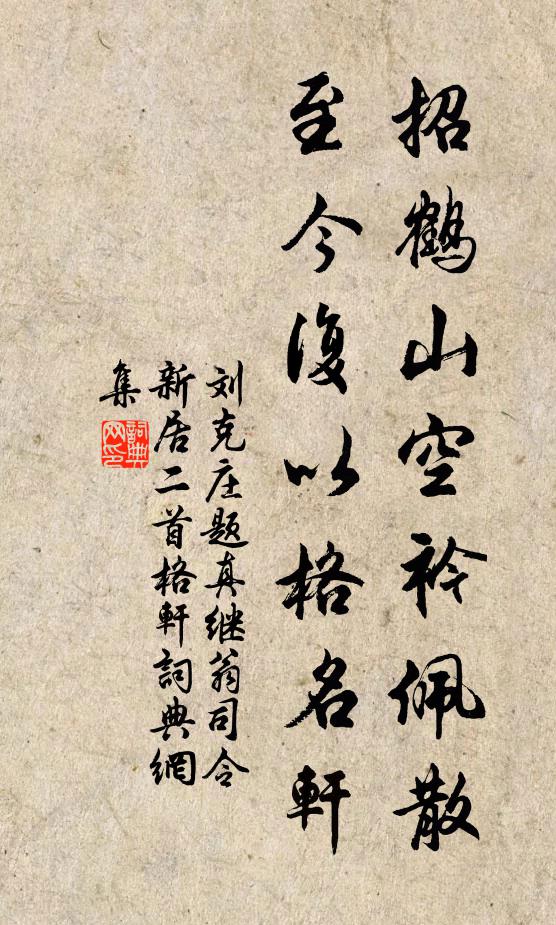 招鶴山空衿佩散
至今復以格名軒
刘克庄题真继翁司令
新居二首格軒詞典網
集
詞典
网印